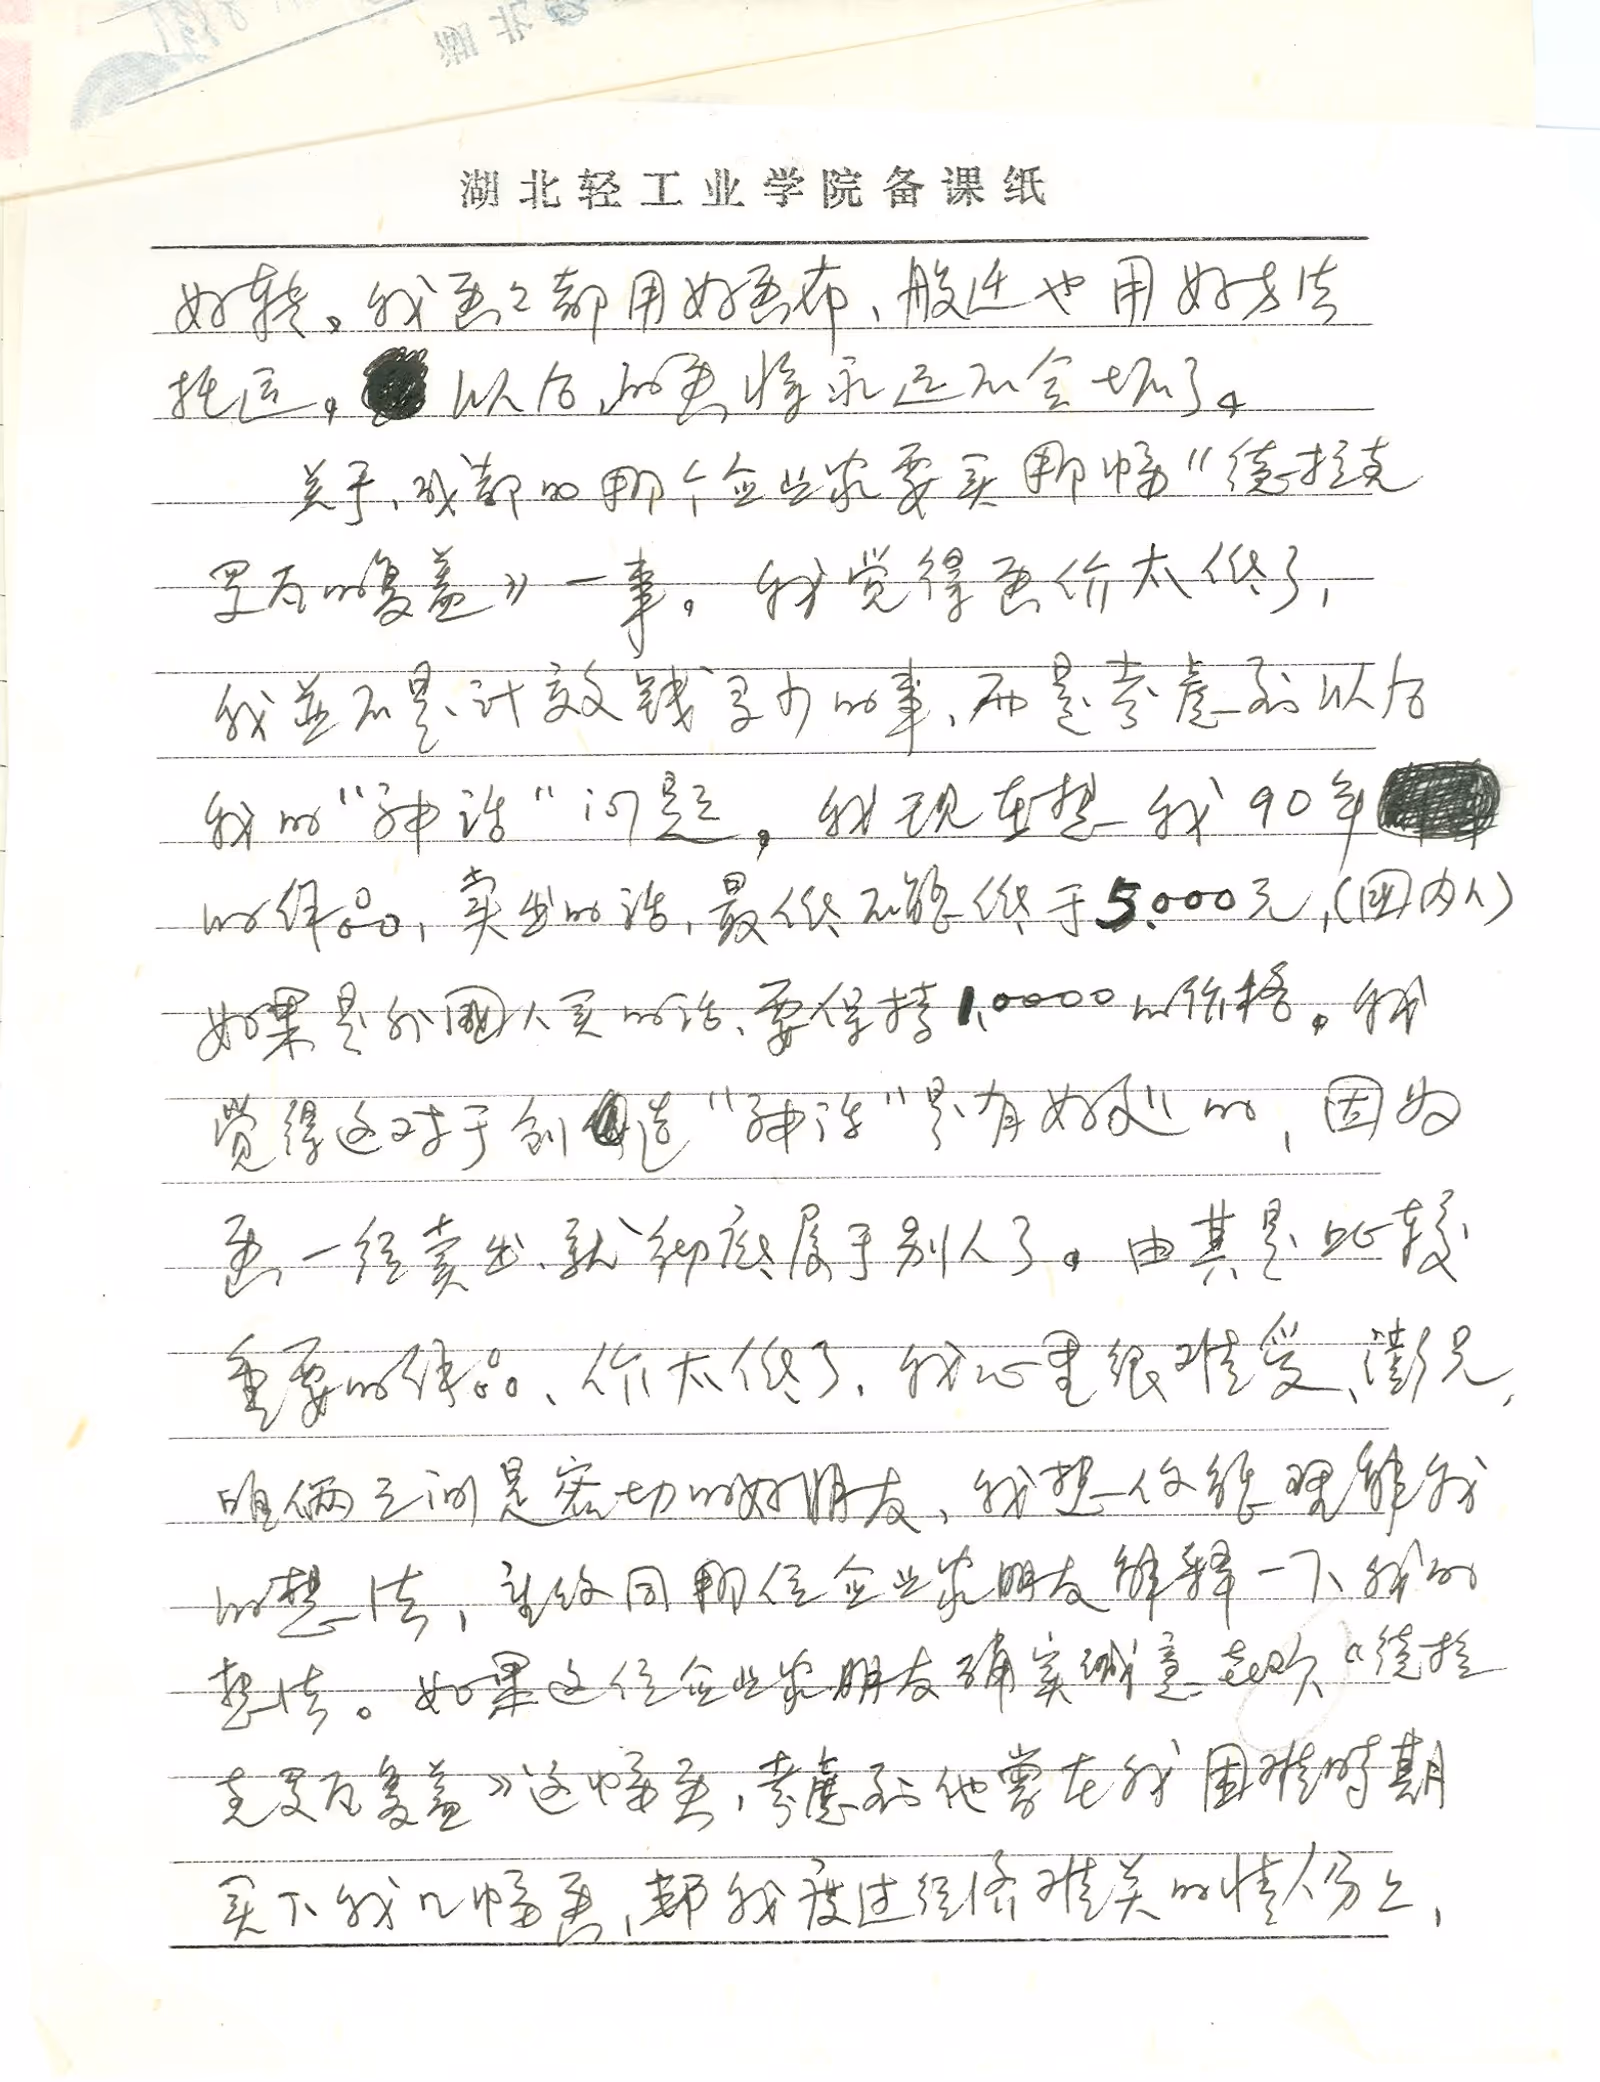 湖北轻工业学院备课纸
好转。我画画都用好画布、般迁也用好方法
托运。以后的画将永远不会坏了。
关于、成都的那个企业家要买那幅“德拉克
罗瓦的复盖》一事。我觉得画价太低了,
我並不是计较钱多少的事、而是考虑到以后
我的“神话”问题。我现在想我90年
的作品,卖出的话,最低不能低于5.000元,(国内人)
如果是外國人买的话、要保持1.0000的价格。我
觉得这对于创造“神话”是有好处的,因为
画一经卖出、就彻底属于别人了。由其是比较
重要的作品、价太低了、我心里很难受、澎兄,
咱俩之间是密切的好朋友、我想你能理解我
的想法,请你同那位企业家朋友解释一下我的
想法。如果这位企业家朋友确实诚意喜欢“德拉
克罗瓦复盖》这幅画,考慮到他曾在我困难时期
买下我几幅画,帮我度过经济难关的情份上,